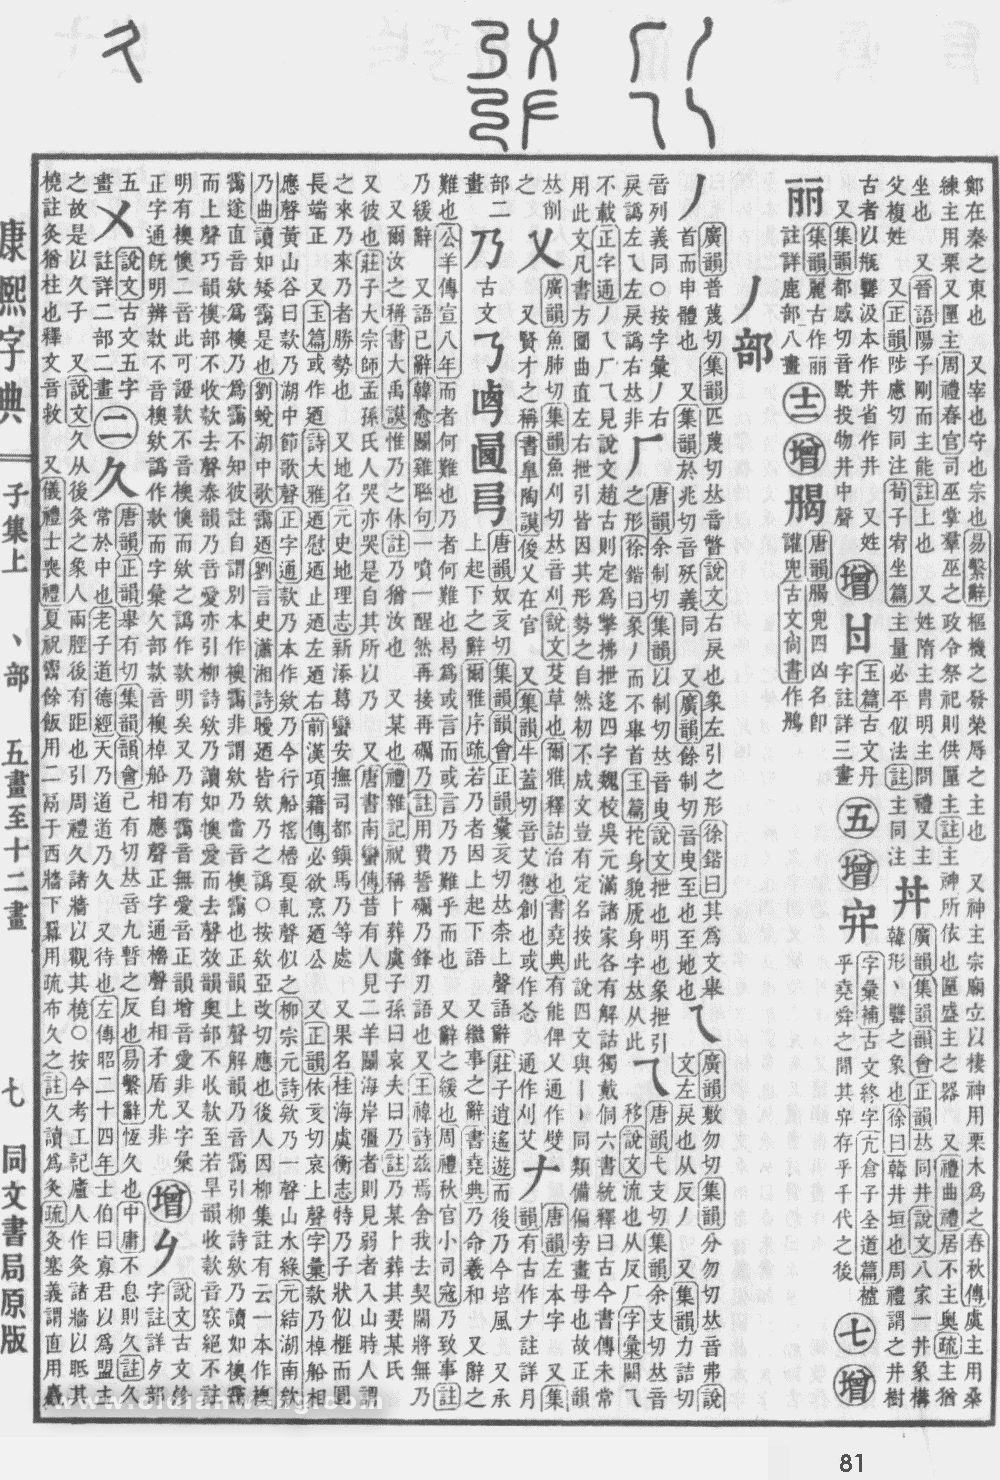 鄭在秦之東也　又宰也守也宗也易繫辭樞機之發榮辱之主也　又神主宗廟立以棲神用栗木爲之春秋傳虞主用桑
練主用栗又匰主周禮春官司巫掌羣巫之政令祭祀則供匰主註主神所依也匰盛主之器　又禮曲禮居不主奧疏主猶
坐也　又晉語陽子剛而主能註上也　又姓隋主胄明主問禮又主
父複姓　又正韻陟慮切同注荀子宥坐篇主量必平似法註主同注
丼
廣韻集韻韻會正韻𠀤同井說文八家一井象構
韓形丶罋之象也徐曰韓井垣也周禮謂之井樹
古者以甁罋汲本作丼省作井　又姓
又集韻都感切音黕投物井中聲
增
玉篇古文丹
字註詳三畫
五
增
字彙補古文終字亢倉子全道篇櫨
乎堯舜之閒其𠂂存乎千代之後
七
增
丽
集韻麗古作丽
註詳鹿部八畫
十二
增
唐韻腸兜四凶名卽
讙兜古文尙書作鴅
丿部
丿
廣韻普蔑切集韻匹蔑切𠀤音瞥說文右戾也象左引之形徐鍇曰其爲文舉
首而申體也　又集韻於兆切音殀義同　又廣韻餘制切音曳至也至地也
乀
廣韻敷勿切集韻分勿切𠀤音弗說
文左戾也从反　又集韻力詰切
音列義同○按字彙丿右
戾譌左乀左戾譌右𠀤非
𠂆
唐韻余制切集韻以制切𠀤音曳說文抴也明也象抴引
之形徐鍇曰象丿而不舉首玉篇拕身貌虒身字𠀤从此
乁
唐韻弋支切集韻余支切𠀤音
移說文流也从反𠂆字彙闕
不載正字通丿乀𠂆乁見說文趙古則定爲擎拂抴迻四字魏校吳元滿諸家各有解詁獨戴侗六書統釋曰古今書傳未常
用此文凡書方圜曲直左右抴引皆因其形勢之自然初不成文豈有定名按此說四文與丨亅同類備偏旁畫母也故正韻
𠀤削
之
乂
廣韻魚肺切集韻魚刈切𠀤音刈說文芟草也爾雅釋詁治也書堯典有能俾乂通作嬖
又賢才之稱書皐陶謨俊乂在官　又集韻牛蓋切音艾懲創也或作忞　通作刈艾
𠂇
唐韻左本字　又集
韻有古作𠂇註詳月
部二
畫
乃
古
文
上起下之辭爾雅序疏若乃者因上上起下語　又繼事之辭書堯典乃命羲和　又辭之
唐韻奴亥切集韻韻會正韻囊亥切𠀤柰上聲語辭莊子逍遙遊而後乃今培風　又承
難也公羊傳宣八年而者何難也乃者何難也曷爲或言而或言乃乃難乎而也　又辭之緩也周禮秋官小司寇乃致事註
乃緩辭　又語已辭韓愈鬭雞聯句一噴一醒然再接再礪乃註用費誓礪乃鋒刃語也又王褘詩茲焉舍我去契闊將無乃
又爾汝之稱書大禹謨惟乃之休註乃猶汝也　又某也禮雜記祝稱卜葬虞子孫曰哀夫曰乃註乃某卜葬其妻某氏
又彼也莊子大宗師孟孫氏人哭亦哭是自其所以乃　又唐書南蠻傳昔有人見二羊鬭海岸彊者則見弱者入山時人謂
之來乃來乃者勝勢也　又地名元史地理志新添葛蠻安撫司都鎭馬乃等處　又果名桂海虞衡志特乃子狀似榧而圓
長端正　又玉篇或作迺詩大雅迺慰迺止迺左迺右前漢項籍傳必欲烹迺公　又正韻依亥切哀上聲字彙欸乃棹船相
應聲黃山谷曰欸乃湖中節歌聲正字通欸乃本作欸乃今行船搖櫓戛軋聲似之柳宗元詩欸乃聲山水綠元結湖南欸
乃曲讀如矮靄是也劉蛻湖中歌靄迺劉言史瀟湘詩曖迺皆欸乃之譌○按欸亞改切應也後人因柳集註有云一本作襖
靄遂直音欸爲襖乃爲靄不知彼註自謂別本作襖靄非謂欸乃當音襖靄也正韻上聲解韻乃音靄引柳詩欸乃讀如襖靄
而上聲巧韻襖部不收欸去聲泰韻乃音愛亦引柳詩欸乃讀如懊愛而去聲效韻奧部不收欸至若旱韻收款音窾絕不註
明有襖懊二音此可證欸不音襖懊而欸之譌作款明矣又乃有靄音無愛音正韻增音愛非又字彙
正字通旣明辨款不音襖欸譌作款而字彙欠部款音襖棹船相應聲正字通櫓聲自相矛盾尤非
增
說文古文㐱
字註詳夕部
五
畫
㐅
說文古文五字
註詳二部二畫
二
久
唐韻正韻舉有切集韻韻會己有切𠀤音九暫之反也易繫辭恆久也中庸不息則久註久
常於中也老子道德經天乃道道乃久　又待也左傳昭二十四年士伯曰寡君以爲盟主
之故是以久子　又說文久从後灸之象人兩脛後有距也引周禮久諸牆以觀其橈○按今考工記廬人作灸諸牆以眡其
橈註灸猶柱也釋文音救　又儀禮士喪禮夏祝鬻餘飯用二鬲于西牆下冪用疏布久之註久讀爲灸疏灸塞義謂直用麤
康熙字典
子集上　丶部　五畫至十二畫
七　同文書局原版
81